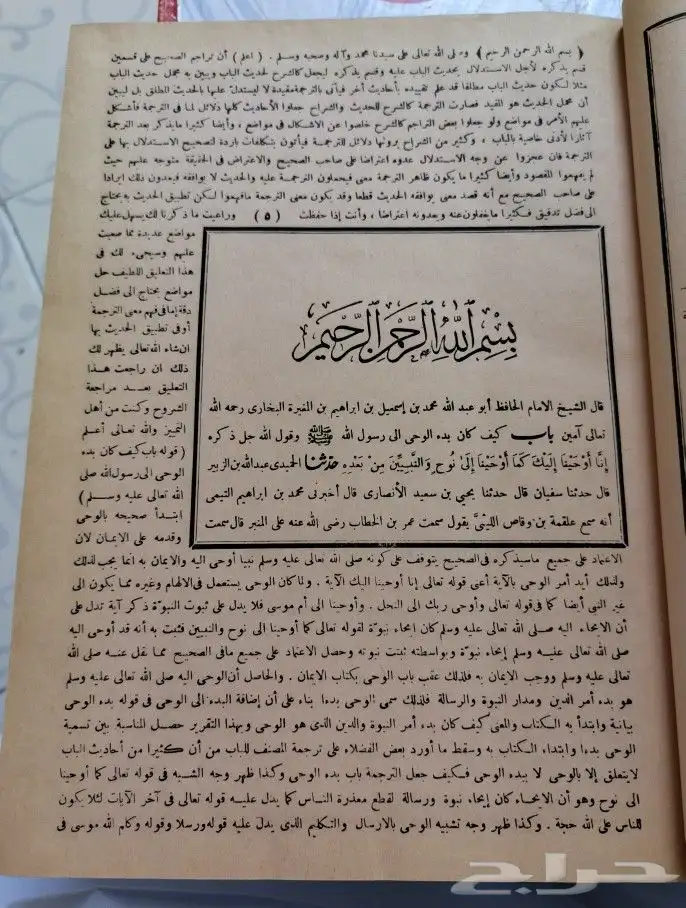 ﴿ بسم الله الرحمن الرحيم ﴾ وصلى الله تعالى على سيدنا محمد وآله وصحبه وسلم . ( اعلم ) أن تراجم الصحيح على قسمين
قسم يذكره لأجل الاستدلال بحديث الباب عليه وقسم يذكره ليجعل كالشرح لحديث الباب ويبين به مجمل حديث الباب
مثلا لكون حديث الباب مطلقا قد علم تقييده بأحاديث أخر فيأتى بالترجمة مقيدة لا ليستدل عليها بالحديث المطلق بل ليبين
أن محمل الحديث هو المقيد فصارت الترجمة كالشرح للحديث والشراح جعلوا الأحاديث كلها دلائل لما فى الترجمة فأشكل
عليهم الأمر فى مواضع ولو جعلوا بعض التراجم كالشرح خلصوا عن الاشكال فى مواضع ، وأيضا كثيرا ما يذكر بعد الترجمة
آثارا لأدنى خاصية بالباب ، وكثير من الشراح يرونها دلائل للترجمة فيأتون بتكلفات باردة لتصحيح الاستدلال بها على
الترجمة فان عجزوا عن وجه الاستدلال عدوه اعتراضا على صاحب الصحيح والاعتراض فى الحقيقة متوجه عليهم حيث
لم يفهموا المقصود وأيضا كثيرا ما يكون ظاهر الترجمة معنى فيحملون الترجمة عليه والحديث لا يوافقه فيعدون ذلك ايرادا
على صاحب الصحيح مع أنه قصد معنى يوافقه الحديث قطعا وقد يكون معنى الترجمة ما فهموا لكن تطبيق الحديث به يحتاج
الى فضل تدقيق فكثيرا ما يغفلون عنه ويعدونه اعتراضا ، وأنت إذا حفظت ( ٥ ) وراعيت ما ذكرنا لك يسهل عليك
مواضع عديدة مما صعبت
عليهم وسيجىء لك فى
هذا التعليق اللطيف حل
مواضع يحتاج الى فضل
دقة إما فى فهم معنى الترجمة
أو فى تطبيق الحديث بها
ان شاء الله تعالى يظهر لك
ذلك ان راجعت هذا
التعليق بعد مراجعة
الشروح وكنت من أهل
التمييز والله تعالى أعلم
( قوله باب كيف كان بدء
الوحى الى رسول الله صلى
الله تعالى عليه وسلم )
ابتدأ صحيحه بالوحى
وقدمه على الايمان لان
بسم الله الرحمن الرحيم
قال الشيخ الامام الحافظ أبو عبد الله محمد بن إسمعيل بن ابراهيم بن المغيرة البخارى رحمه الله
تعالى آمين باب كيف كان بدء الوحى الى رسول الله ﷺ وقول الله جل ذكره
إِنَّا أَوْحَيْنَا إِلَيْكَ كَمَا أَوْحَيْنَا إِلَى نُوحٍ وَالنَّبِيِّينَ مِنْ بَعْدِهِ حدثنا الحميدى عبد الله بن الزبير
قال حدثنا سفيان قال حدثنا يحيى بن سعيد الأنصارى قال أخبرنى محمد بن ابراهيم التيمى
أنه سمع علقمة بن وقاص الليثى يقول سمعت عمر بن الخطاب رضى الله عنه على المنبر قال سمعت
الاعتماد على جميع ما سيذكره فى الصحيح يتوقف على كونه صلى الله تعالى عليه وسلم نبيا أوحى اليه والايمان به انما يجب لذلك
ولذلك أيد أمر الوحى بالآية أعنى قوله تعالى إنا أوحينا اليك الآية . ولما كان الوحى يستعمل فى الالهام وغيره مما يكون الى
غير النبى أيضا كما فى قوله تعالى وأوحى ربك الى النحل . وأوحينا الى أم موسى فلا يدل على ثبوت النبوة ذكر آية تدل على
أن الايحاء اليه صلى الله تعالى عليه وسلم كان إيحاء نبوة لقوله تعالى كما أوحينا الى نوح والنبيين فثبت به أنه قد أوحى اليه
صلى الله تعالى عليه وسلم إيحاء نبوة وبواسطته ثبتت نبوته وحصل الاعتماد على جميع ما فى الصحيح مما نقل عنه صلى الله
تعالى عليه وسلم ووجب الايمان به فلذلك عقب باب الوحى بكتاب الايمان . والحاصل أن الوحى اليه صلى الله تعالى عليه وسلم
هو بدء أمر الدين ومدار النبوة والرسالة فلذلك سمى الوحى بدءا بناء على أن إضافة البدء الى الوحى فى قوله بدء الوحى
بيانية وابتدأ به الكتاب والمعنى كيف كان بدء أمر النبوة والدين الذى هو الوحى وبهذا التقرير حصل المناسبة بين تسمية
الوحى بدءا وابتداء الكتاب به وسقط ما أورد بعض الفضلاء على ترجمة المصنف للباب من أن كثيرا من أحاديث الباب
لا يتعلق إلا بالوحى لا ببدء الوحى فكيف جعل الترجمة باب بدء الوحى وكذا ظهر وجه الشبه فى قوله تعالى كما أوحينا
الى نوح وهو أن الايحاء كان إيحاء نبوة ورسالة لقطع معذرة الناس كما يدل عليه قوله تعالى فى آخر الآيات لئلا يكون
للناس على الله حجة . وكذا ظهر وجه تشبيه الوحى بالارسال والتكليم الذى يدل عليه قوله ورسلا وقوله وكلم الله موسى فى
حراج